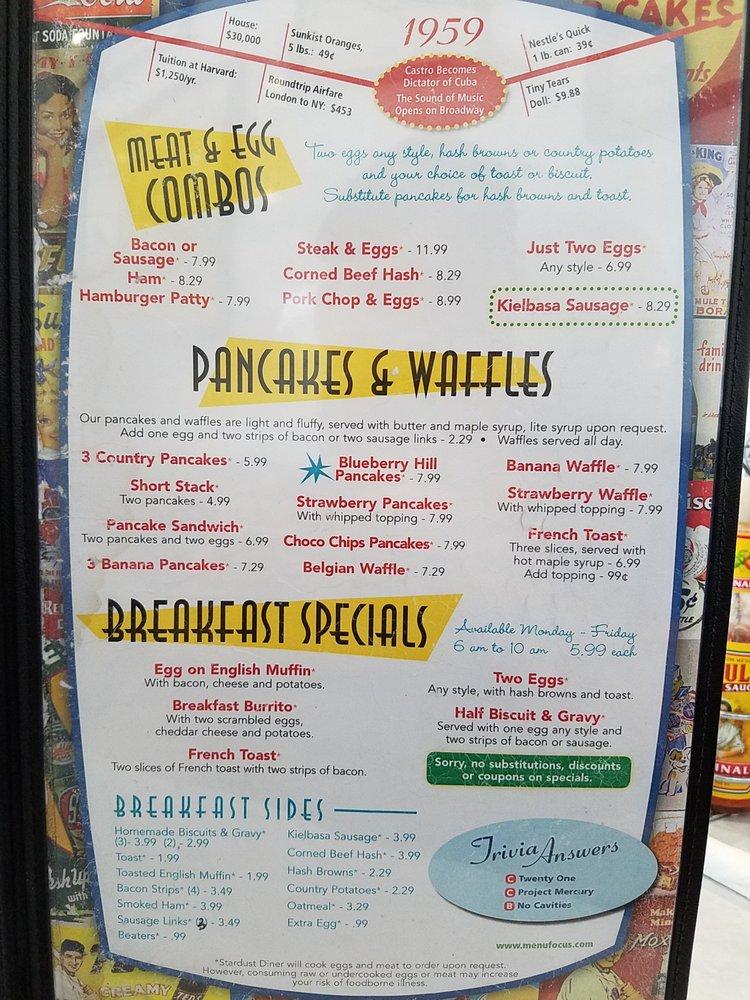 SODA FOUN
CAKES
House:
$30,000
Sunkist Oranges,
5 lbs.: 49¢
1959
Nestle's Quick
1 lb. can: 39¢
Tuition at Harvard:
$1,250/yr.
Roundtrip Airfare
London to NY: $453
Castro Becomes
Dictator of Cuba
The Sound of Music
Opens on Broadway
Tiny Tears
Doll: $9.88
MEAT & EGG
COMBOS
Two eggs any style, hash browns or country potatoes
and your choice of toast or biscuit.
Substitute pancakes for hash browns and toast.
Bacon or
Sausage* - 7.99
Ham* - 8.29
Hamburger Patty* - 7.99
Steak & Eggs* - 11.99
Corned Beef Hash* - 8.29
Pork Chop & Eggs* - 8.99
Just Two Eggs*
Any style - 6.99
Kielbasa Sausage* - 8.29
PANCAKES & WAFFLES
Our pancakes and waffles are light and fluffy, served with butter and maple syrup, lite syrup upon request.
Add one egg and two strips of bacon or two sausage links - 2.29 • Waffles served all day.
3 Country Pancakes* - 5.99
Short Stack*
Two pancakes - 4.99
Pancake Sandwich*
Two pancakes and two eggs - 6.99
3 Banana Pancakes* - 7.29
Blueberry Hill
Pancakes* - 7.99
Strawberry Pancakes*
With whipped topping - 7.99
Choco Chips Pancakes* - 7.99
Belgian Waffle* - 7.29
Banana Waffle* - 7.99
Strawberry Waffle*
With whipped topping - 7.99
French Toast*
Three slices, served with
hot maple syrup - 6.99
Add topping - 99¢
BREAKFAST SPECIALS
Available Monday - Friday
6 am to 10 am 5.99 each
Egg on English Muffin*
With bacon, cheese and potatoes.
Breakfast Burrito*
With two scrambled eggs,
cheddar cheese and potatoes.
French Toast*
Two slices of French toast with two strips of bacon.
Two Eggs*
Any style, with hash browns and toast.
Half Biscuit & Gravy*
Served with one egg any style and
two strips of bacon or sausage.
Sorry, no substitutions, discounts
or coupons on specials.
BREAKFAST SIDES
Homemade Biscuits & Gravy*
(3)- 3.99 (2)- 2.99
Toast* - 1.99
Toasted English Muffin* - 1.99
Bacon Strips* (4) - 3.49
Smoked Ham* - 3.99
Sausage Links* (2) - 3.49
Beaters* - .99
Kielbasa Sausage* - 3.99
Corned Beef Hash* - 3.99
Hash Browns* - 2.29
Country Potatoes* - 2.29
Oatmeal* - 3.29
Extra Egg* - .99
Trivia Answers
C Twenty One
C Project Mercury
B No Cavities
www.menufocus.com
*Stardust Diner will cook eggs and meat to order upon request.
However, consuming raw or undercooked eggs or meat may increase
your risk of foodborne illness.
CREAMY